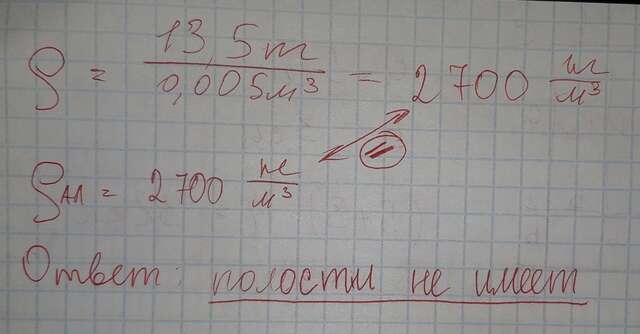 ρ = 13,5т / 0,005м³ = 2700 кг/м³
=
ρАл = 2700 кг/м³
Ответ: полости не имеет